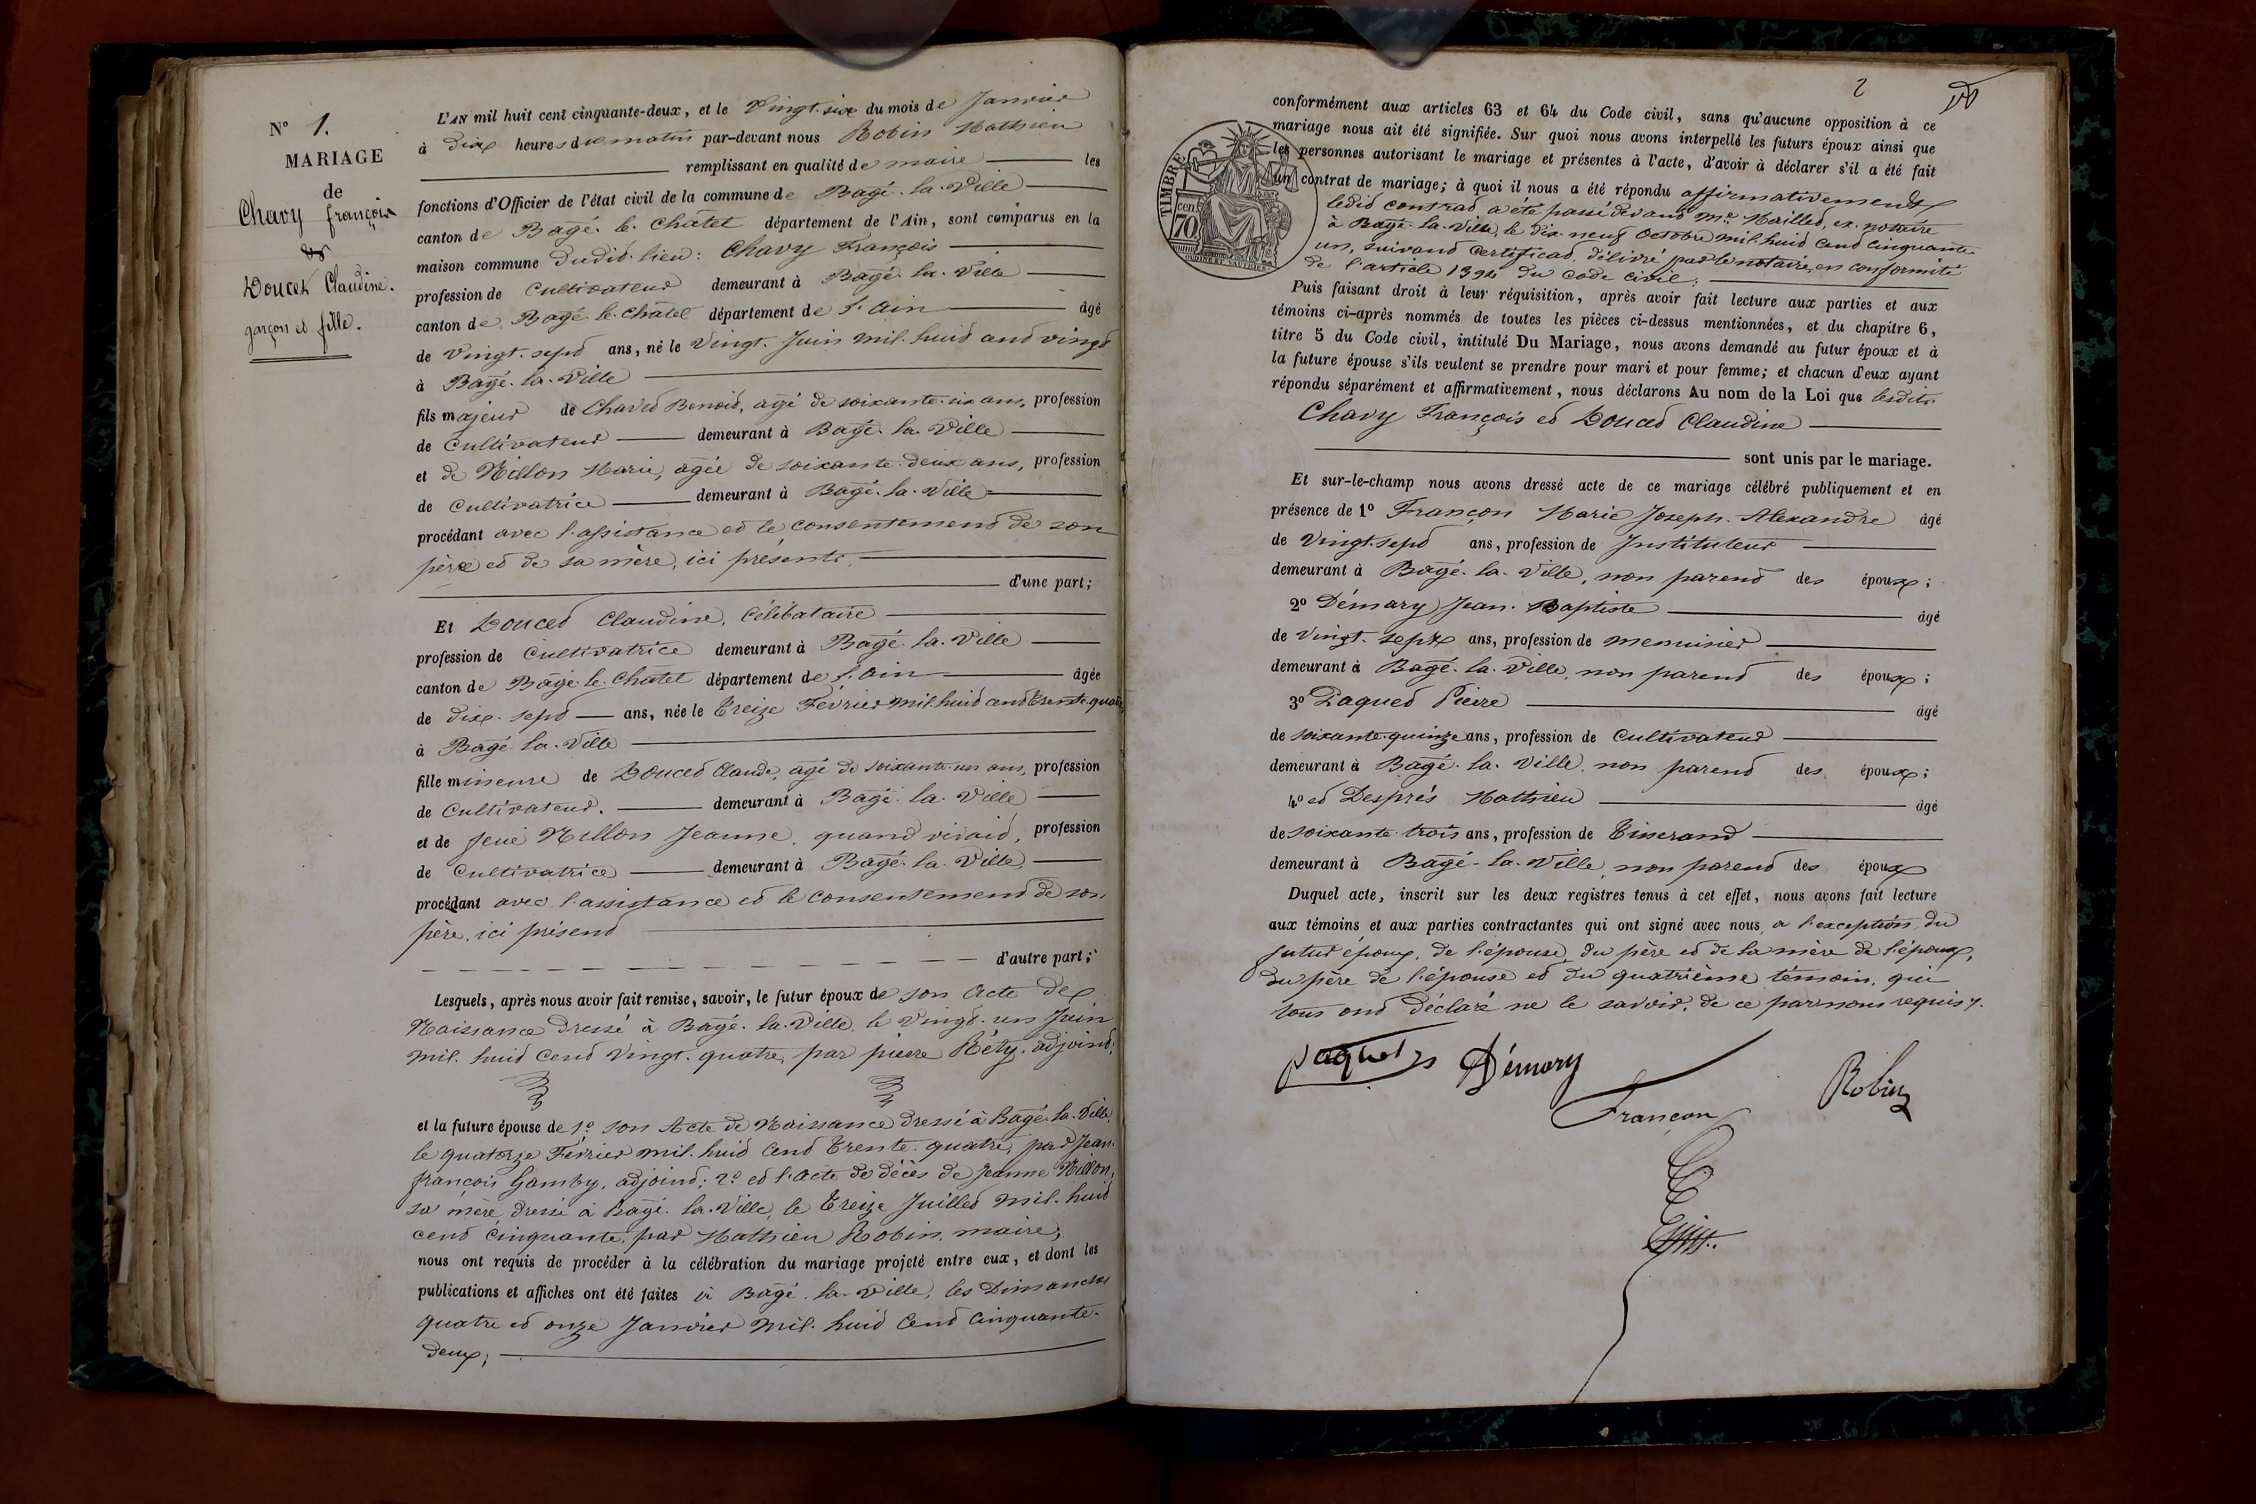 N° 1.
MARIAGE
de
Chavy françois
&
Doucet Claudine.
garçon et fille.
L'AN mil huit cent cinquante-deux, et le Vingt-six du mois de Janvier
à dix heures du matin par-devant nous Robin Mathieu
remplissant en qualité de maire les
fonctions d'Officier de l'état civil de la commune de Bagé-la-Ville
canton de Bagé-le-Châtel département de l'Ain, sont comparus en la
maison commune dudit lieu: Chavy François
profession de Cultivateur demeurant à Bagé-la-Ville
canton de Bagé-le-Châtel département de l'Ain âgé
de Vingt-sept ans, né le Vingt Juin mil-huit cent vingt
à Bagé-la-Ville
fils majeur de Chavet Benoit, âgé de soixante-six ans, profession
de Cultivateur demeurant à Bagé-la-Ville
et de Millon Marie, âgée de soixante-deux ans, profession
de Cultivatrice demeurant à Bagé-la-Ville
procédant avec l'assistance et le consentement de son
père et de sa mère, ici présents.
d'une part;
Et Doucet Claudine, Célibataire
profession de Cultivatrice demeurant à Bagé-la-Ville
canton de Bagé-le-Châtel département de l'Ain âgée
de dix-sept ans, née le Treize Février mil-huit cent trente-quatre
à Bagé-la-Ville
fille mineure de Doucet Claude, âgé de soixante-un ans, profession
de Cultivateur. demeurant à Bagé-la-Ville
et de feue Millon Jeanne, quand vivait, profession
de Cultivatrice demeurant à Bagé-la-Ville
procédant avec l'assistance et le consentement de son
père, ici présent
d'autre part;
Lesquels, après nous avoir fait remise, savoir, le futur époux de son Acte de
Naissance dressé à Bagé-la-Ville, le Vingt-un Juin
mil-huit Cent Vingt-quatre, par pierre Réty, adjoint;
et la future épouse de 1° son Acte de Naissance dressé à Bagé-la-Ville,
le quatorze Février mil-huit Cent Trente-quatre, par Jean-
françois Gamby, adjoint; 2° et l'acte de décès de Jeanne Millon,
sa mère, dressé à Bagé-la-Ville, le Treize Juillet mil-huit
cent Cinquante, par Mathieu Robin, maire;
nous ont requis de procéder à la célébration du mariage projeté entre eux, et dont les
publications et affiches ont été faites à Bagé-la-Ville, les Dimanches
quatre et onze Janvier mil-huit Cent Cinquante-
deux;
2
TIMBRE
cen.
70
conformément aux articles 63 et 64 du Code civil, sans qu'aucune opposition à ce
mariage nous ait été signifiée. Sur quoi nous avons interpellé les futurs époux ainsi que
les personnes autorisant le mariage et présentes à l'acte, d'avoir à déclarer s'il a été fait
un contrat de mariage; à quoi il nous a été répondu affirmativement
ledit contrat a été passé devant Me Maillet, ex-notaire
à Bagé-la-Ville, le dix-neuf Octobre mil-huit Cent Cinquante-
un, suivant Certificat délivré par le notaire, en conformité
de l'article 1394 du code Civil;
Puis faisant droit à leur réquisition, après avoir fait lecture aux parties et aux
témoins ci-après nommés de toutes les pièces ci-dessus mentionnées, et du chapitre 6,
titre 5 du Code civil, intitulé Du Mariage, nous avons demandé au futur époux et à
la future épouse s'ils veulent se prendre pour mari et pour femme; et chacun d'eux ayant
répondu séparément et affirmativement, nous déclarons Au nom de la Loi que lesdits
Chavy François et Doucet Claudine
sont unis par le mariage.
Et sur-le-champ nous avons dressé acte de ce mariage célébré publiquement et en
présence de 1° Françon Marie Joseph-Alexandre âgé
de Vingt-sept ans, profession de Instituteur
demeurant à Bagé-la-Ville, non parent des époux;
2° Démary Jean-Baptiste âgé
de Vingt-sept ans, profession de menuisier
demeurant à Bagé-la-Ville, non parent des époux;
3° Paquet Pierre âgé
de soixante-quinze ans, profession de Cultivateur
demeurant à Bagé-la-Ville, non parent des époux;
4° et Després Mathieu âgé
de soixante-trois ans, profession de Tisserand
demeurant à Bagé-la-Ville, non parent des époux
Duquel acte, inscrit sur les deux registres tenus à cet effet, nous avons fait lecture
aux témoins et aux parties contractantes qui ont signé avec nous, à l'exception du
futur époux, de l'épouse, du père et de la mère de l'époux,
du père de l'épouse et du quatrième témoin, qui
tous ont déclaré ne le savoir, de ce par nous requis.
paquet Démary
Françon
Robin